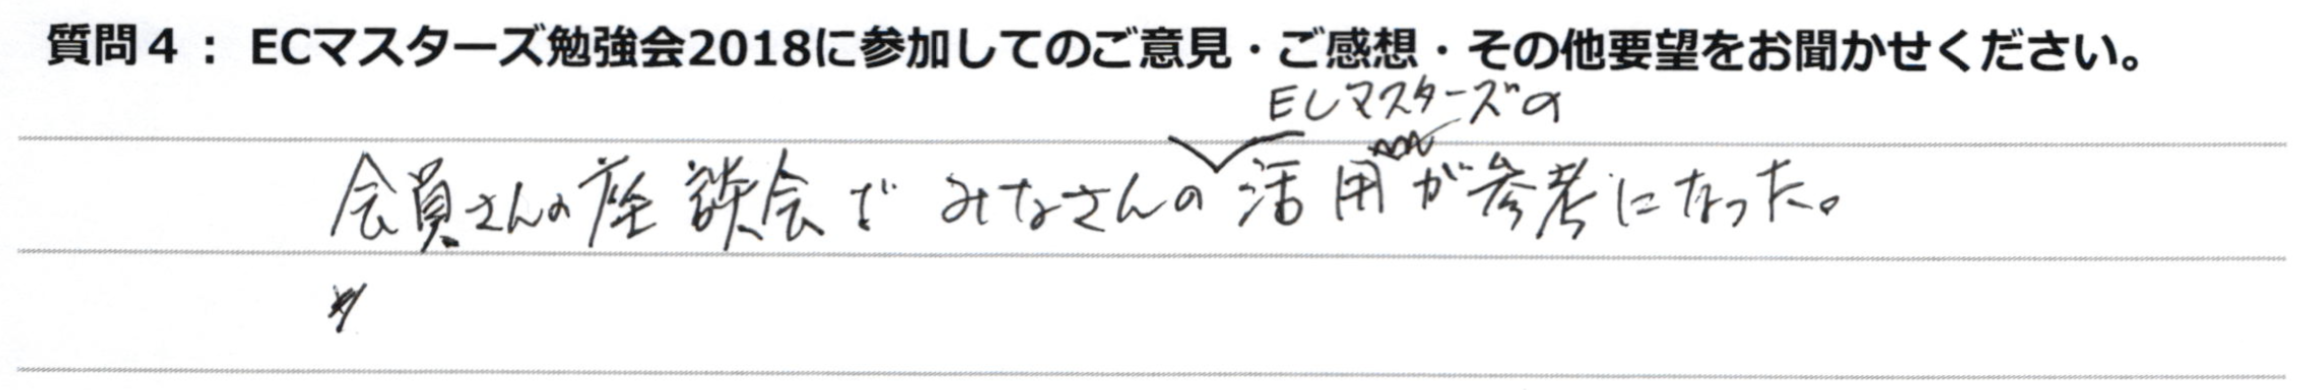 質問４： ECマスターズ勉強会2018に参加してのご意見・ご感想・その他要望をお聞かせください。
ECマスターズの
会員さんの座談会で みなさんの活用が参考になった。